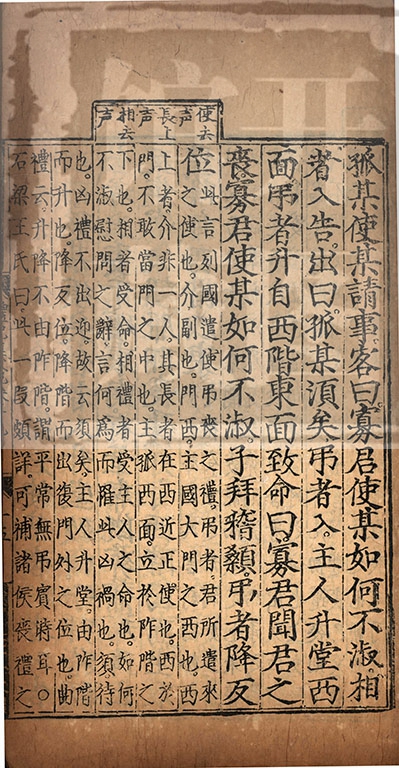 使去声
長上声
相去声
孤某使某請事客曰寡君使某如何不淑相
者入告出曰孤某須矣弔者入主人升堂西
面弔者升自西階東面致命曰寡君聞君之
喪寡君使某如何不淑子拜稽顙弔者降反
位此言列國遣使弔喪之禮弔者君所遣來
之使也介副也門西主國大門之西也西
上者介非一人其長者在西近正使也西於
門不敢當門之中也主孤西面立於阼階之
下也相者受命相禮者受主人之命也如何
不淑慰問之辭言何爲而罹此凶禍也須待
也凶禮不出迎故云須矣主人升堂由阼階
而升也降反位降階而出復門外之位也曲
禮云升降不由阼階謂平常無弔賓時耳○
石梁王氏曰此一段頗詳可補諸侯喪禮之